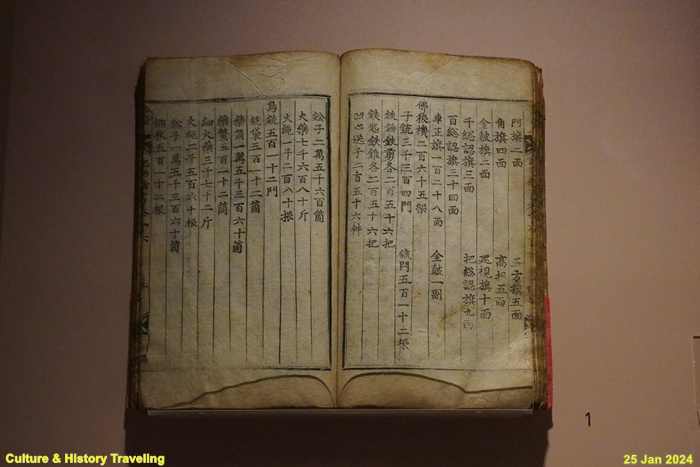 門旗二面 五方旗五面
角旗四面 高招五面
金鼓旗二面 巡視旗十面
千総認旗三面 把総認旗九面
百総認旗三十四面
車正旗一百二十八面 金鼓一副
佛狼機二百六十五架
子銃三千三百四門 鐵閂五百一十二根
鉄鎚鉄剪各二百五十六把
鉄匙鉄錐各二百五十六把
凹心送子二百五十六件
鈆子二萬五千六百箇
火藥七千六百八十斤
火繩一千二百八十根
鳥銃五百一十二門
銃袋五百一十二箇
藥筒一萬五千三百六十箇
藥鱉五百一十二箇
細火藥三千七十二斤
火繩二千五百六十根
鈆子一萬五千三百六十箇
杖五百一十二根
1
Culture & History Traveling
25 Jan 2024